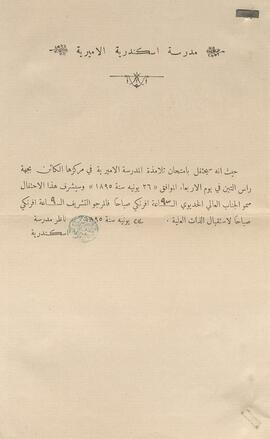 مدرسة اسكندرية الاميرية
حيث انه سيحتفل بامتحان تلامذة المدرسة الاميرية في مركزها الكائن بجهة
راس التين في يوم الاربعاء الموافق « ٢٦ يونيه سنة ١٨٩٥ » وسيشرف هذا الاحتفال
سمو الجناب العالي الخديوي الساعة ٩ افرنكي صباحًا فالمرجو التشريف الساعة افرنكي
صباحًا لاستقبال الذات العلية ٠ يونيه سنة ١٨٩٥ ناظر مدرسة
اسكندرية